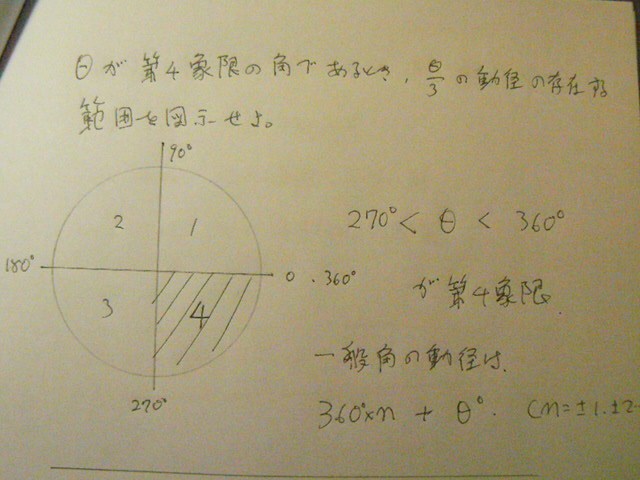 θが第4象限の角であるとき, θ/3 の動径の存在する
範囲を図示せよ。
90°
2 1
180° 0.360°
3 4
270°
270° < θ < 360°
が第4象限
一般角の動径は、
360°×n + θ°. (n=±1.±2